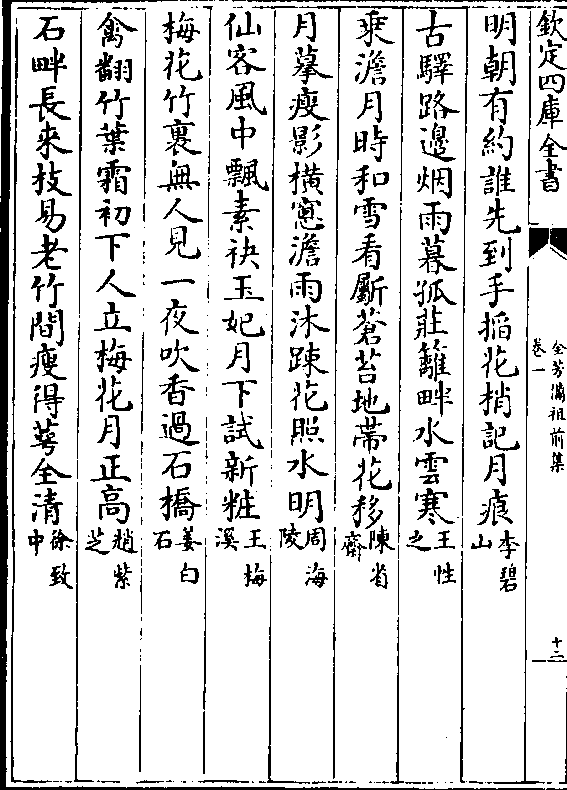 欽定四庫全書
全芳備祖前集
卷一
十二
明朝有約誰先到手搯花梢記月痕李碧山
古驛路邊烟雨暮孤莊籬畔水雲寒王性之
乗澹月時和雪看斸蒼苔地帶花移陳肖齋
月摹瘦影橫窓澹雨沐踈花照水明周海陵
仙客風中飄素袂玉妃月下試新粧王梅溪
梅花竹裏無人見一夜吹香過石橋姜白石
禽翻竹葉霜初下人立梅花月正高趙紫芝
石畔長來枝易老竹間瘦得蕚全清徐致中